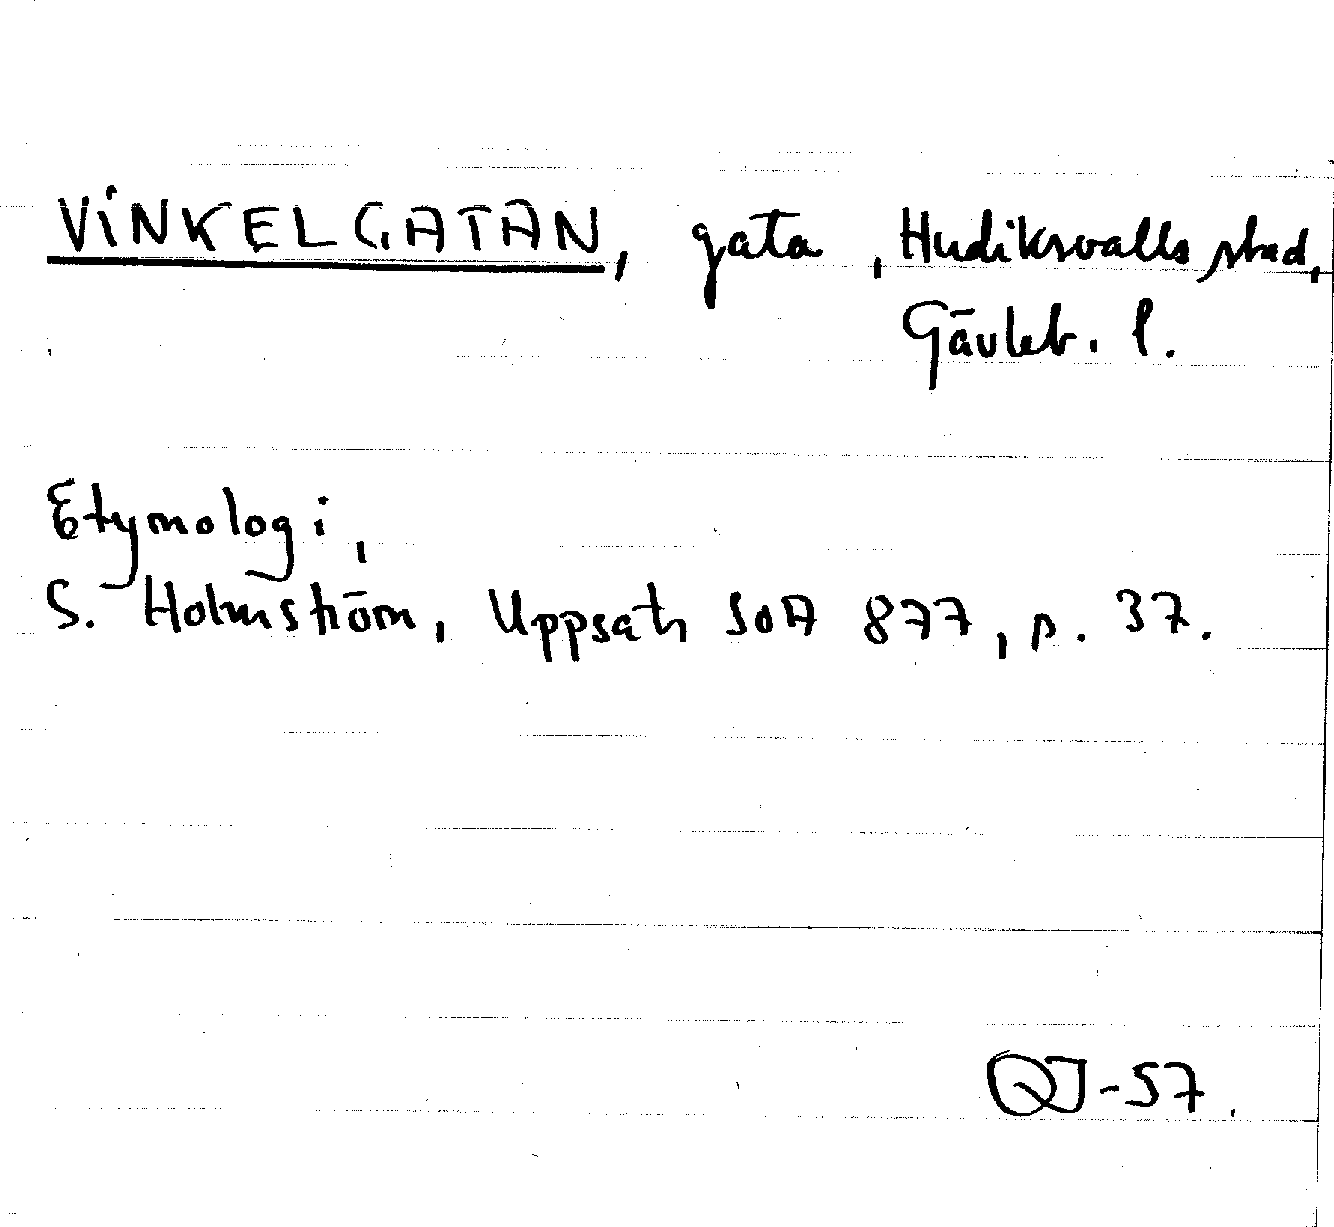 VINKELGATAN, gata, Hudiksvalls stad,
Gävleb. l.
Etymologi,
S. Holmström, Uppsats SOA 877, s. 37.
QJ-57.